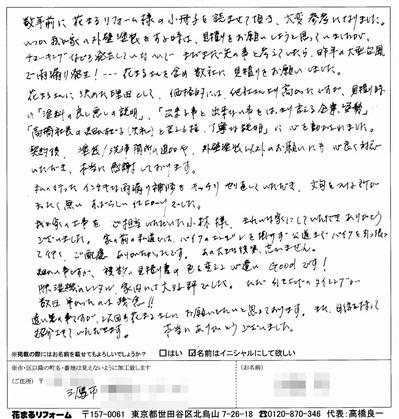 数年前に花まるリフォーム様の小冊子を読ませて頂き、大変参考になりました。
いつか我が家の外壁塗装をする時は、見積りをお願いしようと思っていましたが、
チョーキングなども発生していないしで まだまだ先の事と考えていたら、昨年の大型台風
で雨漏り発生!---花まるさんを含め数社に見積りをお願いしました。
花まるさんに決めた理由として、価格的には他社より高めだったですが、見積り時
の「塗料の良し悪しの説明」、「出来る事と出来ない事をはっきり言える企業姿勢」
「高橋社長の
丁寧な説明」に心を動かされました。
契約後、塗装/洗浄箇所の追加や、外壁塗装以外のお願いにも心良く対応
いただき、本当に感謝しております。
雨漏り補修をキッチリやり直していただき、文句のつけようが
ないすばらしい仕上がりでした。
我が家の工事をご担当いただいた小林様、きれいな家にしていただきありがとう
ございました。家の前の私道では、バイクのエンジンを掛けず公道までバイクを引っ張っ
て行くご配慮ありがとうございます。あの大変な後姿、忘れません。
細かい事ですが、複数の見積り書の色を変える心遣い Goodです!
除湿機のレンタル、家内には大好評でした。ただ
数日早かったのは残念!!
遠い先の事ですが、次回も花まるさんにお願いしたいと思っております。また、自信を持って
紹介させていただきます。 本当にありがとうございました。
※掲載の際にはお名前を載せてもよろしいでしょうか? □はい ☑名前はイニシャルにして欲しい
※市・区以降の町名・番地は見えないように加工致します
(ご住所) 三鷹市
(お名前)
花まるリフォーム 〒157-0061 東京都世田谷区北烏山7-26-18 ☎0120-870-346 代表:高橋良一